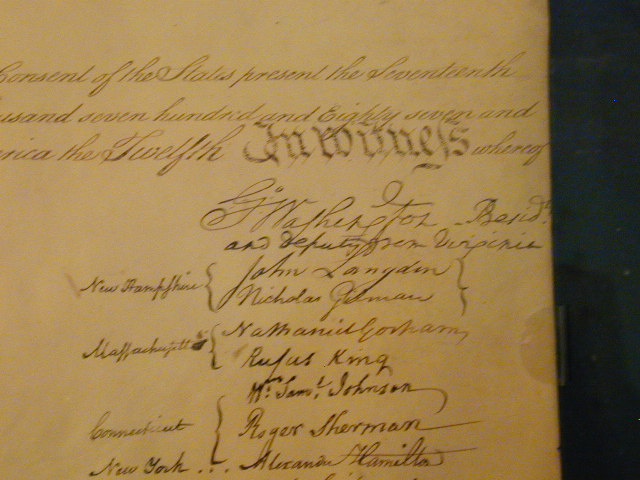 Consent of the States present the Seventeenth
usand seven hundred and Eighty seven and
erica the Twelfth In witness whereof
Go Washington Presidt
and deputy from Virginia
New Hampshire { John Langdon
Nicholas Gilman }
Massachusetts { Nathaniel Gorham
Rufus King
Connecticut { Wm Saml Johnson
Roger Sherman
New York ... Alexander Hamilton